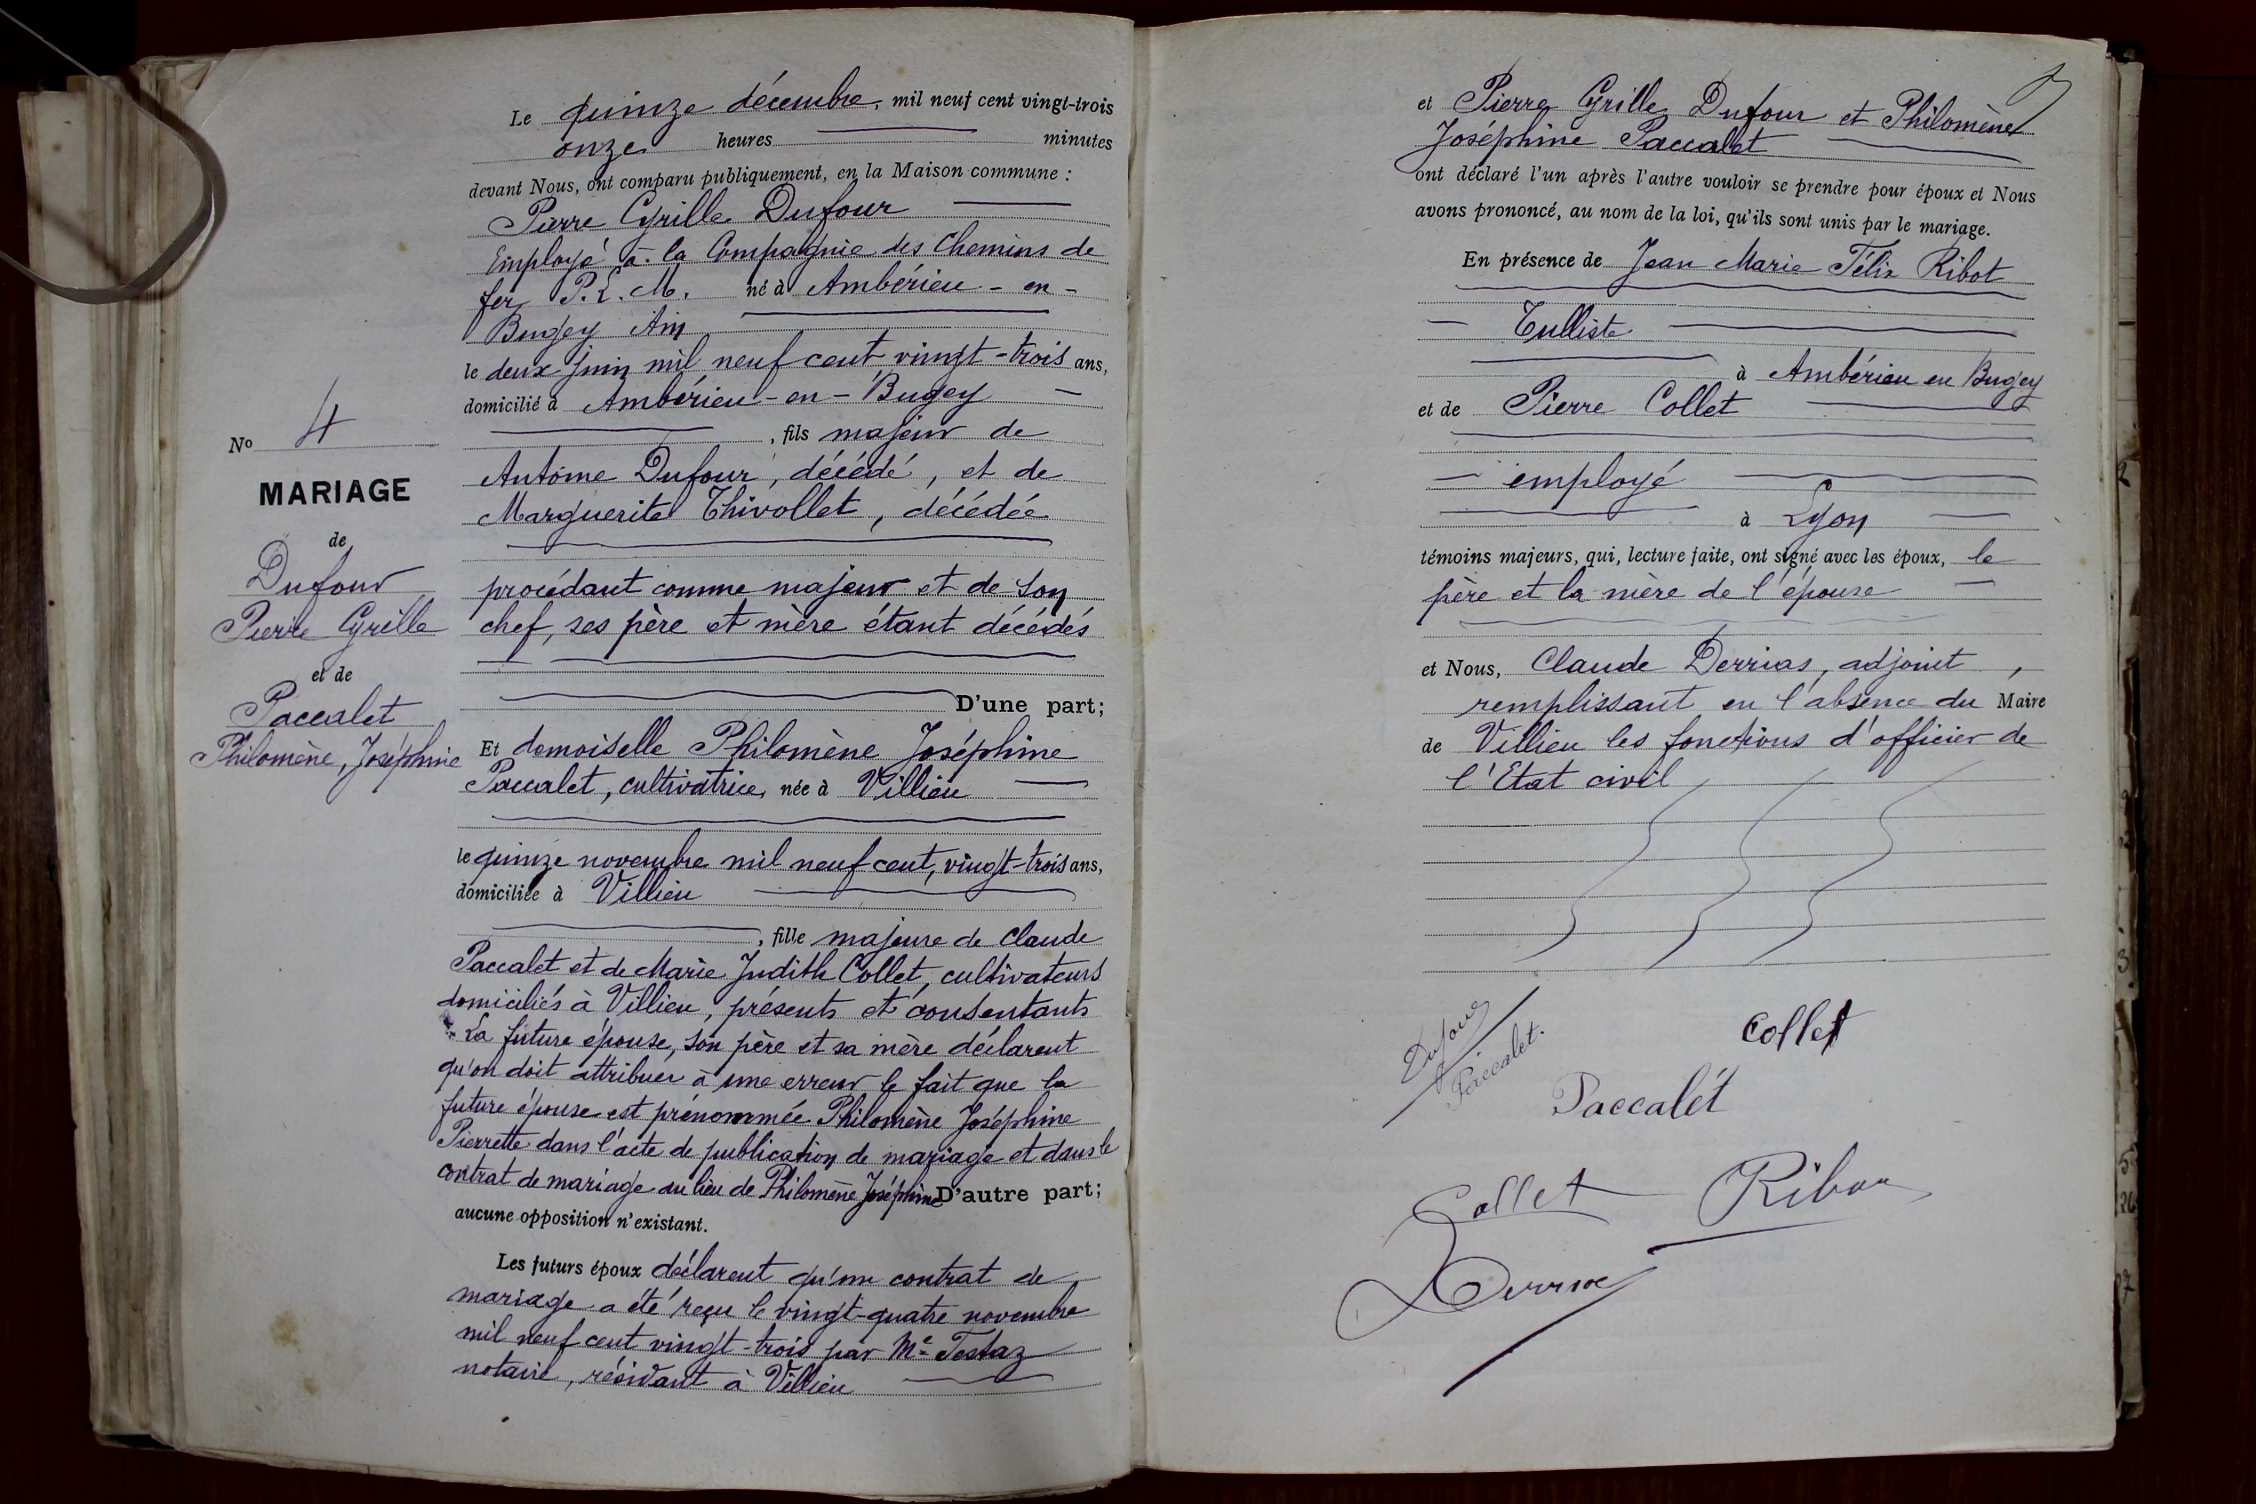 Le quinze décembre, mil neuf cent vingt-trois
onze heures minutes
devant Nous, ont comparu publiquement, en la Maison commune :
Pierre Cyrille Dufour
Employé à la Compagnie des Chemins de
fer P.L.M. né à Ambérieu-en-
Bugey Ain
le deux Juin mil neuf cent, vingt-trois ans,
domicilié à Ambérieu-en-Bugey
, fils majeur de
Antoine Dufour, décédé, et de
Marguerite Thivollet, décédée
procédant comme majeur et de son
chef, ses père et mère étant décédés
D'une part;
Et demoiselle Philomène Joséphine
Paccalet, cultivatrice, née à Villieu
le quinze novembre mil neuf cent, vingt-trois ans,
domiciliée à Villieu
, fille majeure de Claude
Paccalet et de Marie Judith Collet, cultivateurs
domiciliés à Villieu, présents et consentants
La future épouse, son père et sa mère déclarent
qu'on doit attribuer à une erreur le fait que la
future épouse est prénommée Philomène Joséphine
Pierrette dans l'acte de publication de mariage et dans le
contrat de mariage au lieu de Philomène Joséphine D'autre part;
aucune opposition n'existant.
Les futurs époux déclarent qu'un contrat de
mariage a été reçu le vingt-quatre novembre
mil neuf cent vingt-trois par Me Testaz
notaire, résidant à Villieu
No 4
MARIAGE
de
Dufour
Pierre Cyrille
et de
Paccalet
Philomène, Joséphine
et Pierre Cyrille Dufour et Philomène
Joséphine Paccalet
ont déclaré l'un après l'autre vouloir se prendre pour époux et Nous
avons prononcé, au nom de la loi, qu'ils sont unis par le mariage.
En présence de Jean Marie Félix Ribot
Tulliste
à Ambérieu en Bugey
et de Pierre Collet
employé
à Lyon
témoins majeurs, qui, lecture faite, ont signé avec les époux, le
père et la mère de l'épouse
et Nous, Claude Derrias, adjoint,
remplissant en l'absence du Maire
de Villieu les fonctions d'officier de
l'Etat civil
Dufour
Paccalet.
Collet
Paccalet
Collet